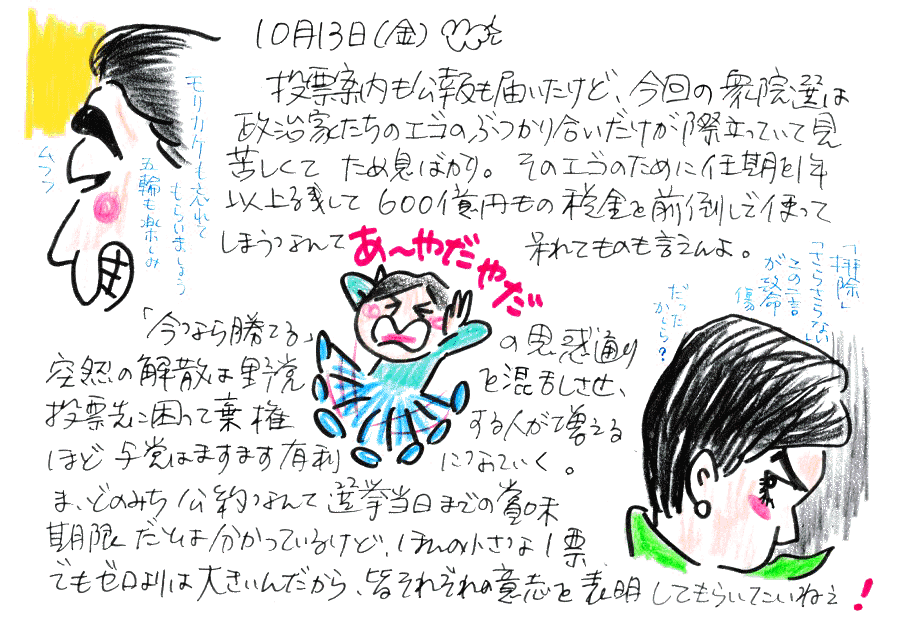 10月13日(金)
投票案内も公報も届いたけど、今回の衆院選は
政治家たちのエゴのぶつかり合いだけが際立っていて見
苦しくて ため息ばかり。そのエゴのために任期を1年
以上残して 600億円もの税金を前倒しで使って
しまうなんて あ〜やだやだ 呆れてものも言えんよ。
モリカケも忘れて
もらいましょう
五輪も楽しみ
ムフフ
「排除」
「さらさらない」
この二言
が致命
傷
だった
かしら?
「今なら勝てる」の思惑通り
突然の解散は野党を混乱させ、
投票先に困って棄権する人が増える
ほど与党はますます有利になっていく。
ま、どのみち公約なんて選挙当日までの賞味
期限だとは分かっているけど、ほんの小さな1票
でもゼロよりは大きいんだから、皆それぞれの意志を表明してもらいてこいねぇ!